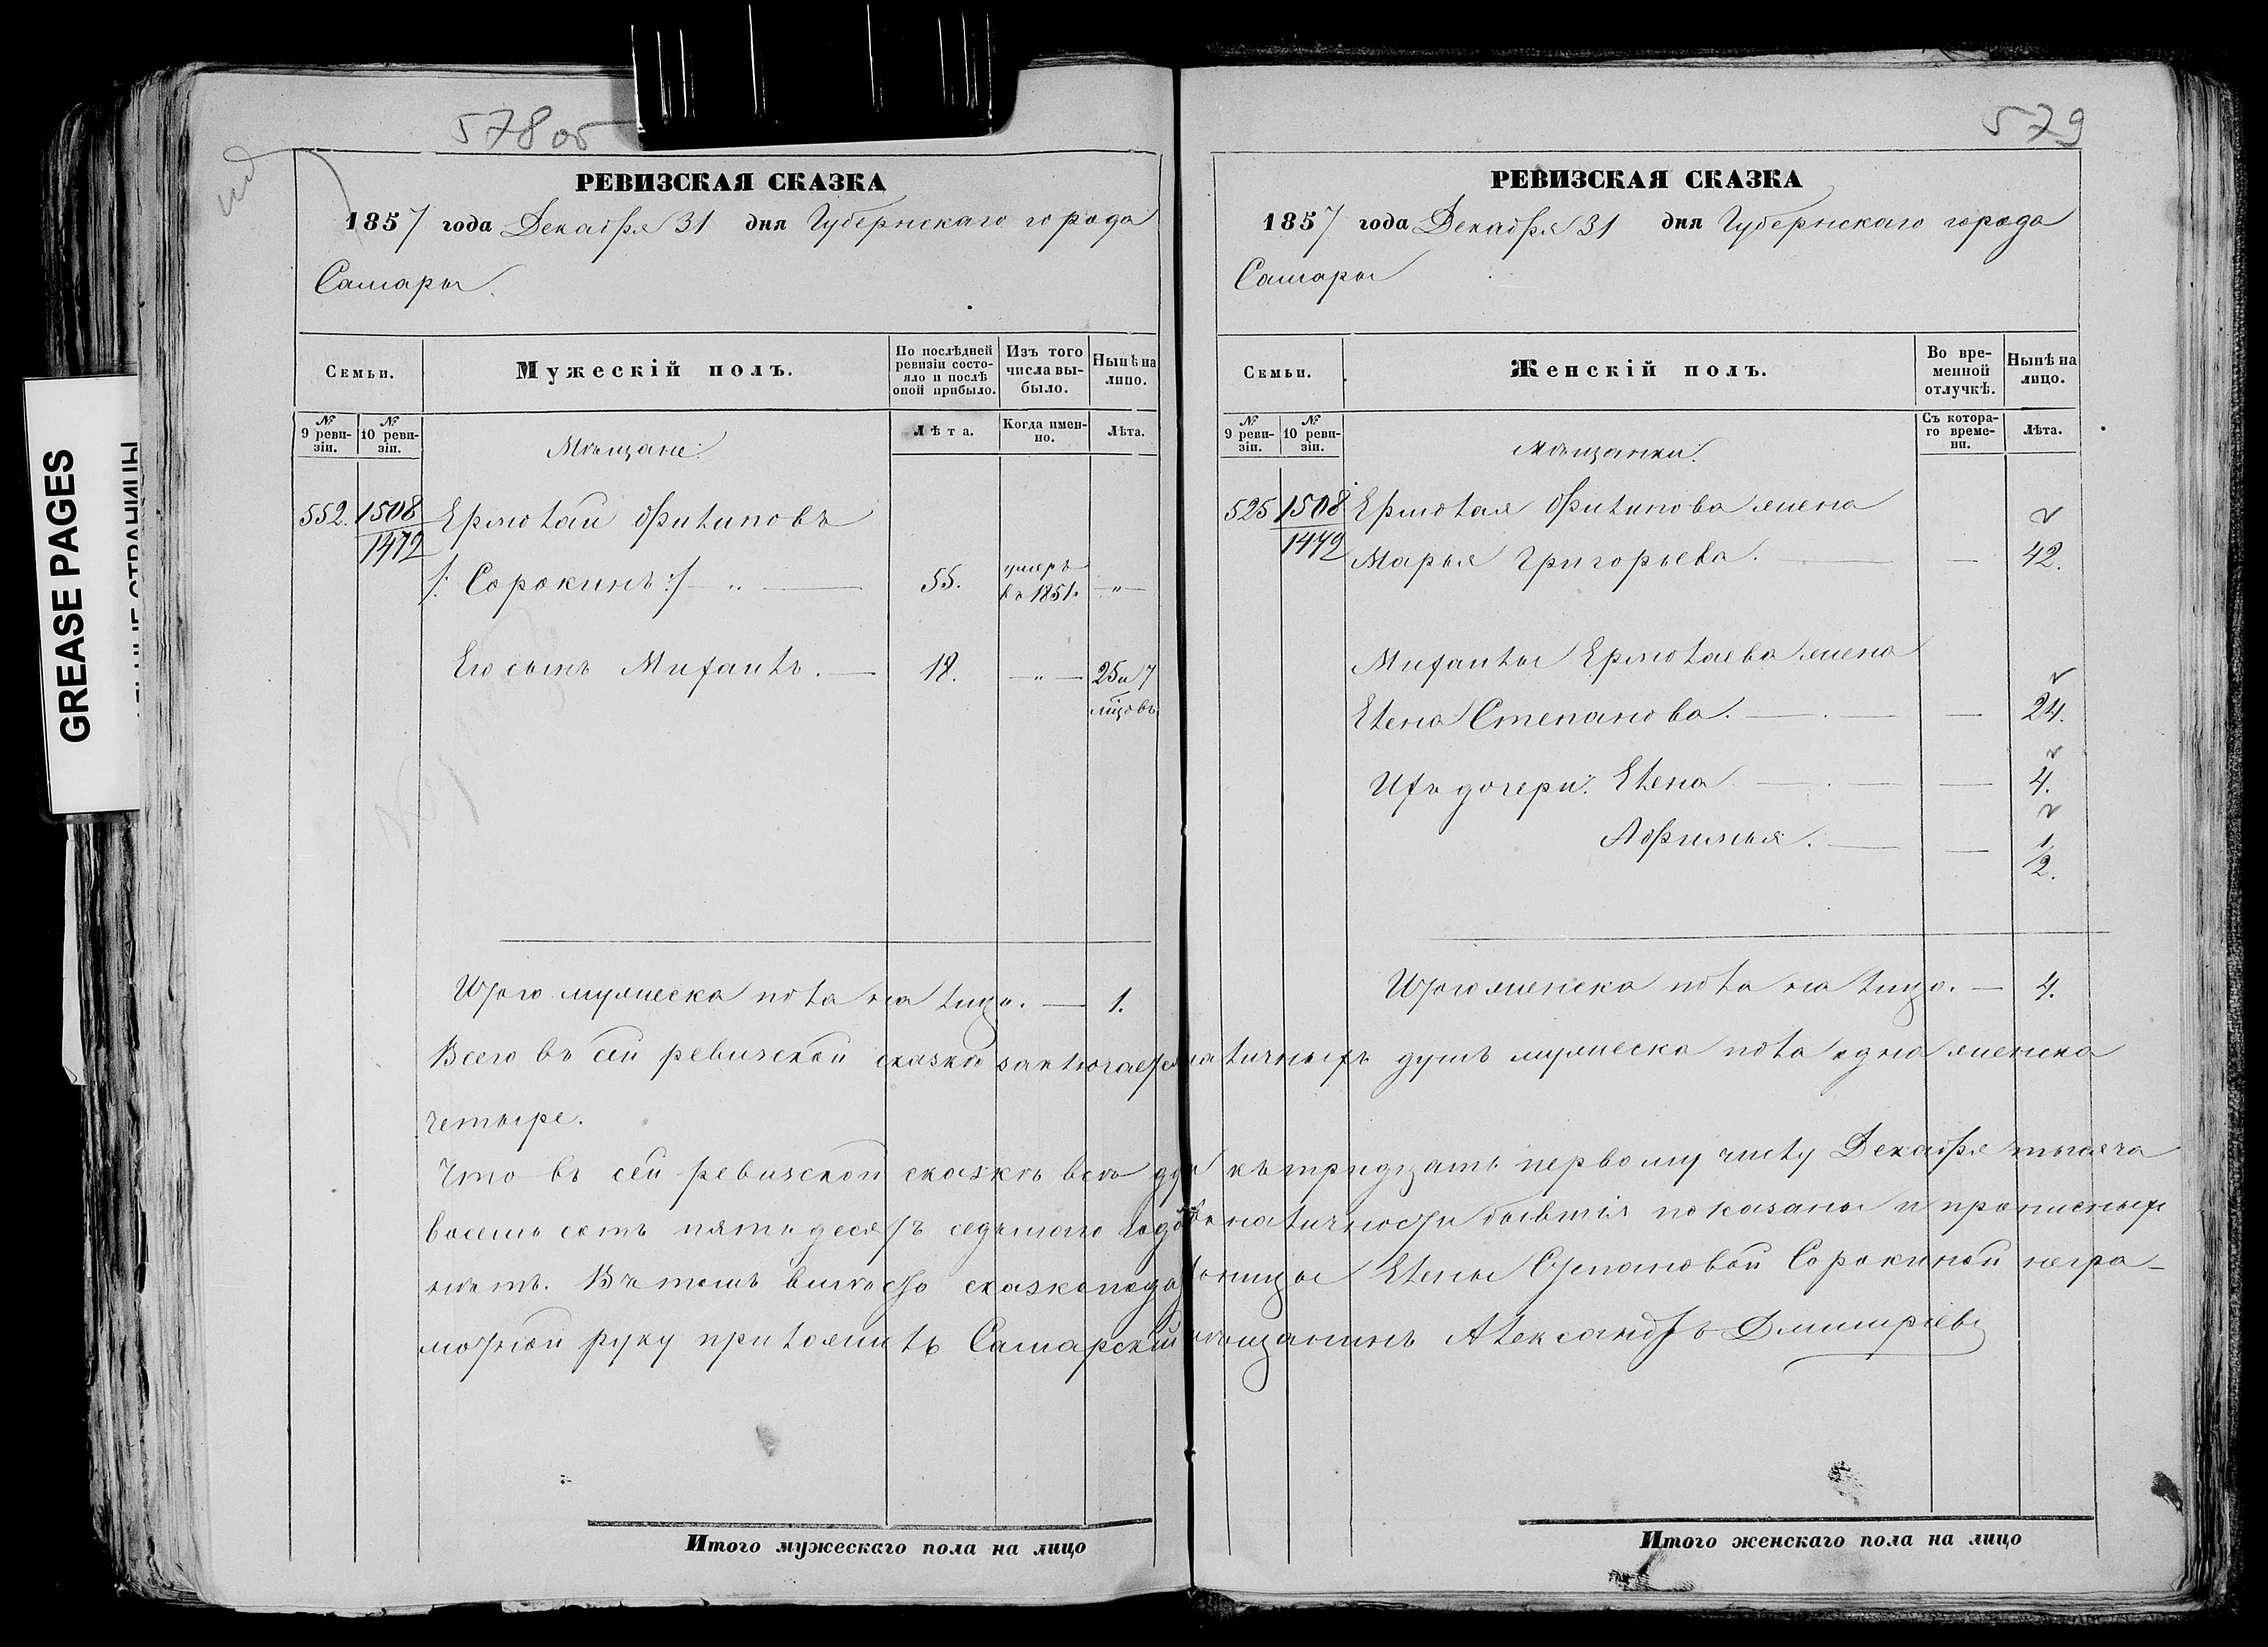 GREASE PAGES
578 об
РЕВИЗСКАЯ СКАЗКА
1857 года Декабря 31 дня Губернскаго города
Самары.
Семьи.
Мужескій полъ.
По послѣдней ревизіи состояло и послѣ оной прибыло.
Изъ того числа выбыло.
Нынѣ на лицо.
№ 9 ревизіи.
№ 10 ревизіи.
Мѣщане:
Лѣта.
Когда именно.
Лѣта.
552. 1508 Ермолай Филиповъ
1472
/: Сорокинъ :/ — „ — 55. умеръ въ 1851. — „ —
Его сынъ Михаилъ. — 18. — „ — 25 и 7
мцовъ
Итого мужеска пола на лицо. — 1.
579
РЕВИЗСКАЯ СКАЗКА
1857 года Декабря 31 дня Губернскаго города
Самары
Семьи.
Женскій полъ.
Во временной отлучкѣ.
Нынѣ на лицо.
№ 9 ревизіи.
№ 10 ревизіи.
Мѣщанки:
Съ котораго времени.
Лѣта.
525 1508 Ермолая Филипова жена
1472 Марья Григорьева. — — 42.
Михаилы Ермолаева жена
Елена Степанова. — — 24.
Ихъ дочери: Елена — — 4.
Афимья. — — 1/2.
Итого женска пола на лицо. — 4.
Всего въ сей ревизской сказкѣ заключается наличныхъ душъ мужеска пола одна женска
четыре.
Что въ сей ревизской сказкѣ всѣ къ тридцать первому числу Декабря тысяча
восемь сотъ пятьдесятъ седьмого года въ наличности бывшія показаны и прописныхъ
нѣтъ. Въ томъ вмѣсто сказкоподательницы Елены Степановой Сорокиной негра-
мотной руку приложилъ Самарскій мѣщанинъ Александръ Дмитріевъ
Итого мужескаго пола на лицо
Итого женскаго пола на лицо